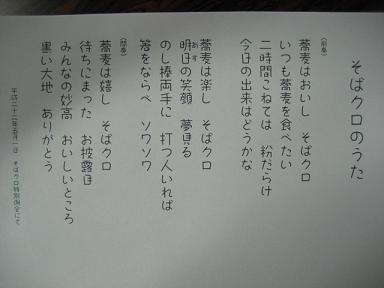 そばクロのうた
(前奏)
蕎麦はおいし　そばクロ
いつも蕎麦を食べたい
二時間こねては　粉だらけ
今日の出来はどうかな
蕎麦は楽し　そばクロ
明日の笑顔　夢見る
のし棒両手に　打つ人いれば
箸をならべ　ソワソワ
(間奏)
蕎麦は嬉し　そばクロ
待ちにまった　お披露目
みんなの妙高　おいしいところ
黒い大地　ありがとう